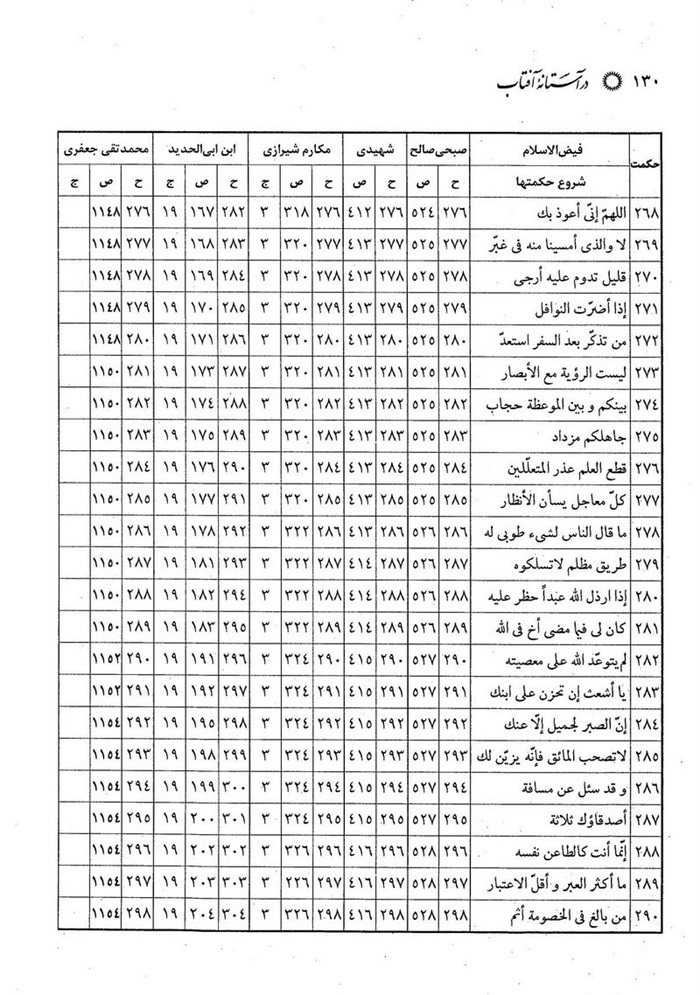 ۱۳۰ درآستانهٔ آفتاب
حکمت فیض‌الاسلام صبحی‌صالح شهیدی مکارم شیرازی ابن ابی‌الحدید محمدتقی جعفری
شروع حکمتها ح ص ح ص ح ص ج ح ص ج ح ص ج
۲٦۸ اللهمّ إنّی أعوذ بك ۲۷٦ ٥۲٤ ۲۷٦ ٤۱۲ ۲۷٦ ۳۱۸ ۳ ۲۸۲ ۱٦۷ ۱۹ ۲۷٦ ۱۱٤۸
۲٦۹ لا والذی أمسینا منه فی غبّر ۲۷۷ ٥۲٥ ۲۷۷ ٤۱۳ ۲۷۷ ۳۲۰ ۳ ۲۸۳ ۱٦۸ ۱۹ ۲۷۷ ۱۱٤۸
۲۷۰ قلیل تدوم علیه أرجی ۲۷۸ ٥۲٥ ۲۷۸ ٤۱۳ ۲۷۸ ۳۲۰ ۳ ۲۸٤ ۱٦۹ ۱۹ ۲۷۸ ۱۱٤۸
۲۷۱ إذا أضرّت النوافل ۲۷۹ ٥۲٥ ۲۷۹ ٤۱۳ ۲۷۹ ۳۲۰ ۳ ۲۸٥ ۱۷۰ ۱۹ ۲۷۹ ۱۱٤۸
۲۷۲ من تذکّر بعد السفر استعدّ ۲۸۰ ٥۲٥ ۲۸۰ ٤۱۳ ۲۸۰ ۳۲۰ ۳ ۲۸٦ ۱۷۱ ۱۹ ۲۸۰ ۱۱٤۸
۲۷۳ لیست الرؤیة مع الأبصار ۲۸۱ ٥۲٥ ۲۸۱ ٤۱۳ ۲۸۱ ۳۲۰ ۳ ۲۸۷ ۱۷۳ ۱۹ ۲۸۱ ۱۱٥۰
۲۷٤ بینکم و بین الموعظة حجاب ۲۸۲ ٥۲٥ ۲۸۲ ٤۱۳ ۲۸۲ ۳۲۰ ۳ ۲۸۸ ۱۷٤ ۱۹ ۲۸۲ ۱۱٥۰
۲۷٥ جاهلکم مزداد ۲۸۳ ٥۲٥ ۲۸۳ ٤۱۳ ۲۸۳ ۳۲۰ ۳ ۲۸۹ ۱۷٥ ۱۹ ۲۸۳ ۱۱٥۰
۲۷٦ قطع العلم عذر المتعلّلین ۲۸٤ ٥۲٥ ۲۸٤ ٤۱۳ ۲۸٤ ۳۲۰ ۳ ۲۹۰ ۱۷٦ ۱۹ ۲۸٤ ۱۱٥۰
۲۷۷ کلّ معاجل یسأن الأنظار ۲۸٥ ٥۲٥ ۲۸٥ ٤۱۳ ۲۸٥ ۳۲۰ ۳ ۲۹۱ ۱۷۷ ۱۹ ۲۸٥ ۱۱٥۰
۲۷۸ ما قال الناس لشیء طوبی له ۲۸٦ ٥۲٦ ۲۸٦ ٤۱۳ ۲۸٦ ۳۲۲ ۳ ۲۹۲ ۱۷۸ ۱۹ ۲۸٦ ۱۱٥۰
۲۷۹ طریق مظلم لاتسلکوه ۲۸۷ ٥۲٦ ۲۸۷ ٤۱٤ ۲۸۷ ۳۲۲ ۳ ۲۹۳ ۱۸۱ ۱۹ ۲۸۷ ۱۱٥۰
۲۸۰ إذا ارذل الله عبداً حظر علیه ۲۸۸ ٥۲٦ ۲۸۸ ٤۱٤ ۲۸۸ ۳۲۲ ۳ ۲۹٤ ۱۸۲ ۱۹ ۲۸۸ ۱۱٥۰
۲۸۱ کان لی فیما مضی أخ فی الله ۲۸۹ ٥۲٦ ۲۸۹ ٤۱٤ ۲۸۹ ۳۲۲ ۳ ۲۹٥ ۱۸۳ ۱۹ ۲۸۹ ۱۱٥۰
۲۸۲ لم یتوعّد الله علی معصیته ۲۹۰ ٥۲۷ ۲۹۰ ٤۱٥ ۲۹۰ ۳۲٤ ۳ ۲۹٦ ۱۹۱ ۱۹ ۲۹۰ ۱۱٥۲
۲۸۳ یا أشعث إن تحزن علی ابنك ۲۹۱ ٥۲۷ ۲۹۱ ٤۱٥ ۲۹۱ ۳۲٤ ۳ ۲۹۷ ۱۹۲ ۱۹ ۲۹۱ ۱۱٥۲
۲۸٤ إنّ الصبر لجمیل إلّا عنك ۲۹۲ ٥۲۷ ۲۹۲ ٤۱٥ ۲۹۲ ۳۲٤ ۳ ۲۹۸ ۱۹٥ ۱۹ ۲۹۲ ۱۱٥٤
۲۸٥ لاتصحب المائق فإنّه یزیّن لك ۲۹۳ ٥۲۷ ۲۹۳ ٤۱٥ ۲۹۳ ۳۲٤ ۳ ۲۹۹ ۱۹۸ ۱۹ ۲۹۳ ۱۱٥٤
۲۸٦ و قد سئل عن مسافة ۲۹٤ ٥۲۷ ۲۹٤ ٤۱٥ ۲۹٤ ۳۲٤ ۳ ۳۰۰ ۱۹۹ ۱۹ ۲۹٤ ۱۱٥٤
۲۸۷ أصدقاؤك ثلاثة ۲۹٥ ٥۲۷ ۲۹٥ ٤۱٥ ۲۹٥ ۳۲٤ ۳ ۳۰۱ ۲۰۰ ۱۹ ۲۹٥ ۱۱٥٤
۲۸۸ إنّما أنت کالطاعن نفسه ۲۹٦ ٥۲۸ ۲۹٦ ٤۱٦ ۲۹٦ ۳۲٦ ۳ ۳۰۲ ۲۰۲ ۱۹ ۲۹٦ ۱۱٥٤
۲۸۹ ما أکثر العبر و أقلّ الاعتبار ۲۹۷ ٥۲۸ ۲۹۷ ٤۱٦ ۲۹۷ ۲۲٦ ۳ ۳۰۳ ۲۰۳ ۱۹ ۲۹۷ ۱۱٥٤
۲۹۰ من بالغ فی الخصومة أثم ۲۹۸ ٥۲۸ ۲۹۸ ٤۱٦ ۲۹۸ ۳۲٦ ۳ ۳۰٤ ۲۰٤ ۱۹ ۲۹۸ ۱۱٥٤